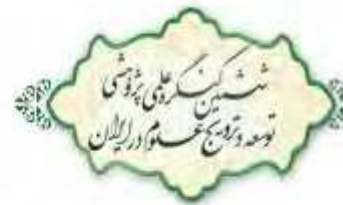 ششمین کنگره علمی پژوهشی
توسعه و ترویج علوم در ایران